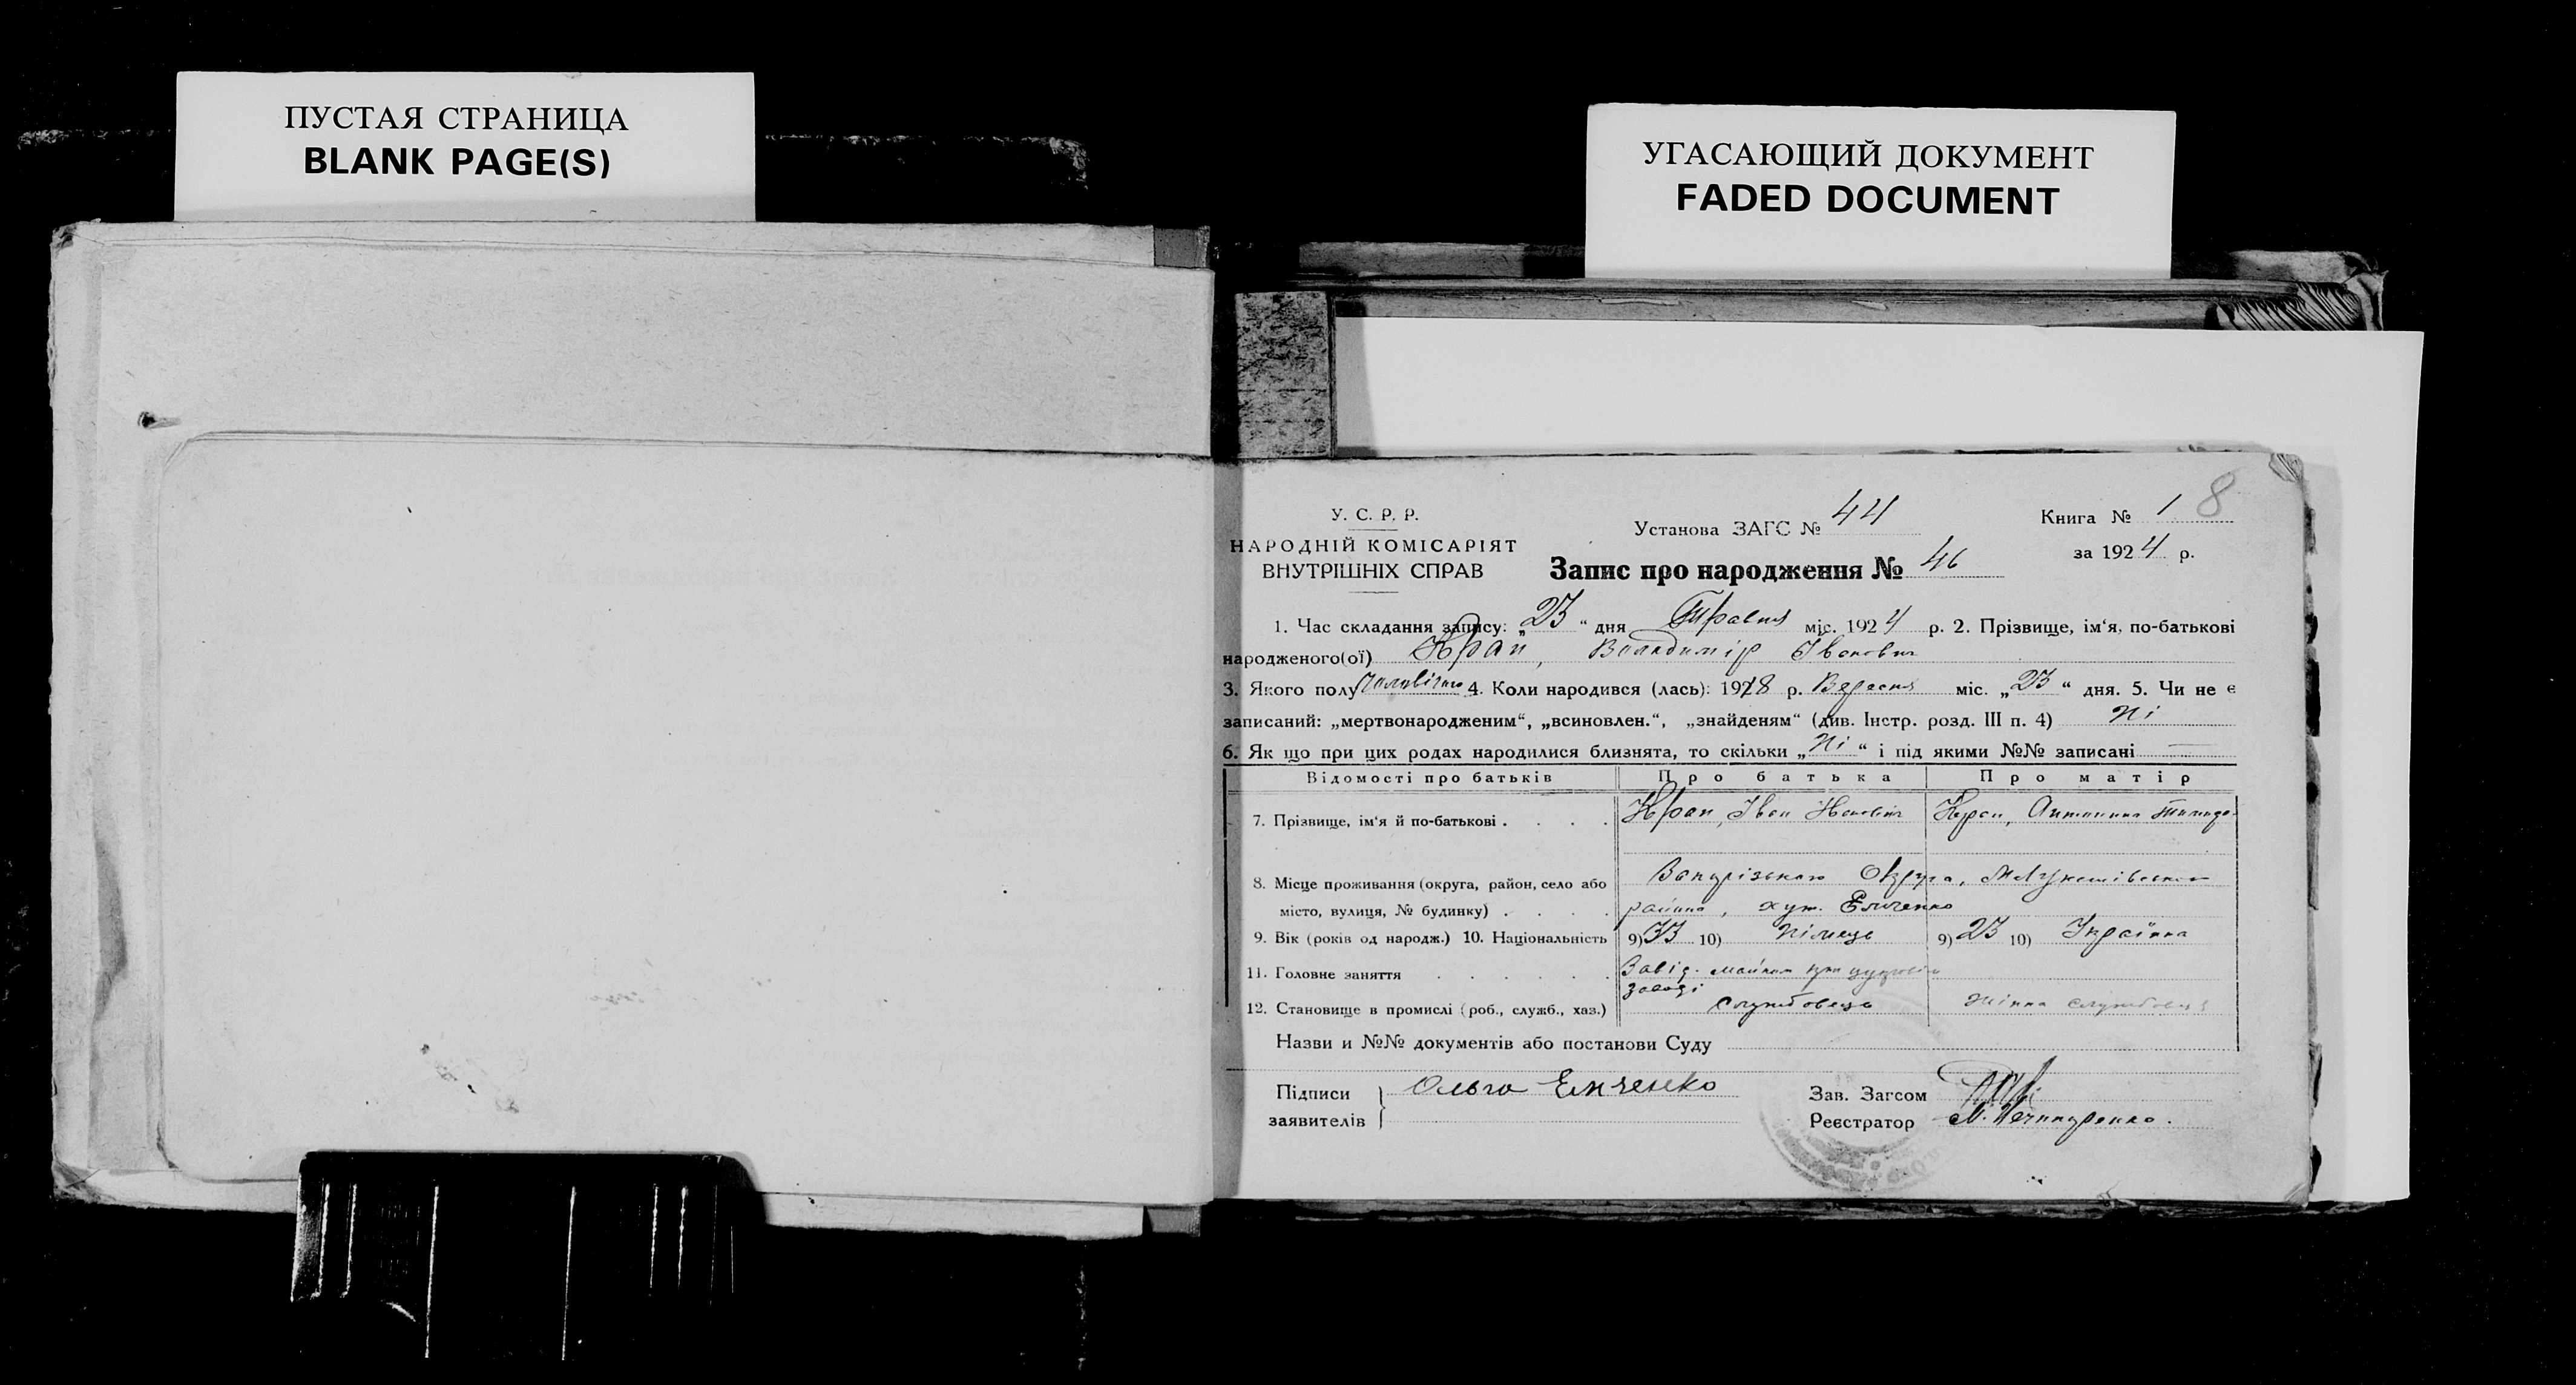 ПУСТАЯ СТРАНИЦА
BLANK PAGE(S)
УГАСАЮЩИЙ ДОКУМЕНТ
FADED DOCUMENT
У. С. Р. Р.
НАРОДНІЙ КОМІСАРІЯТ
ВНУТРІШНІХ СПРАВ
Установа ЗАГС № 44
Книга № 1 8
за 1924 р.
Запис про народження № 46
1. Час складання запису: „23“ дня Травня міс. 1924 р. 2. Прізвище, ім‘я, по-батькові
народженого(ої) Кран, Владимір Іванович
3. Якого полу 4. Коли народився (лась): 1918 р. Вересня міс. „23“ дня. 5. Чи не є
записаний: „мертвонародженим“, „всиновлен.“, „знайденям“ (див. Інстр. розд. III п. 4) Ні
6. Як що при цих родах народилися близнята, то скільки „Ні“ і під якими №№ записані —
Відомості про батьків Про батька Про матір
7. Прізвище, ім‘я й по-батькові . . . . Кран, Іван Кран,
8. Місце проживання (округа, район, село або
місто, вулиця, № будинку) . . . . Округа,
хут. Емченко
9. Вік (років од народж.) 10. Національність 9) 33 10) Німець 9) 23 10) Українка
11. Головне заняття . . . . . . Завід.
заводі
12. Становище в промислі (роб., служб., хаз.) Службовець Жінка службовця
Назви и №№ документів або постанови Суду
Підписи
заявителів
Ольга Емченко
Зав. Загсом
Реєстратор М. Нечипуренко.